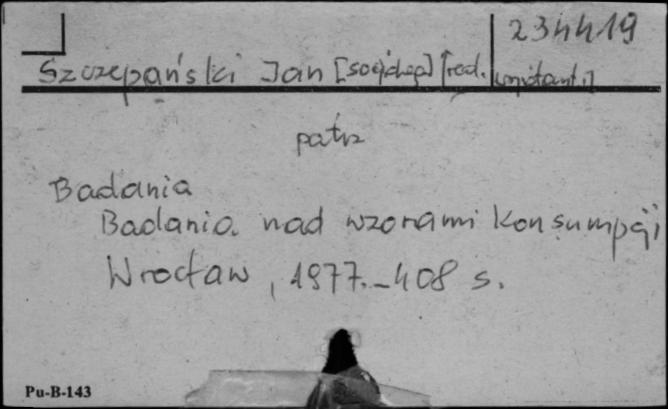 234419
Szczepański Jan [socjolog] [red.
patrz
Badania
Badania nad wzorami konsumpcji
Wrocław, 1977. - 408 s.
Pu-B-143